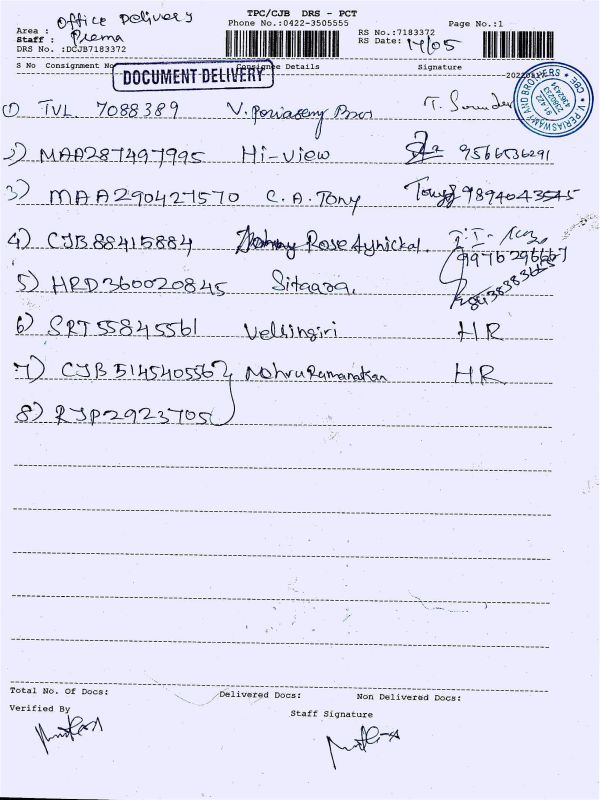 TPC/CJB DRS - PCT
Phone No.:0422-3505555
Page No.:1
Area : Office Delivery
Staff : Prema
DRS No. :DCJB7183372
RS No.:7183372
RS Date: 14/05
S No Consignment No Consignee Details Signature
DOCUMENT DELIVERY
V. PERIASWAMY AND BROTHERS * CBE
1) TVL 7088389 V. Periasamy Bros
2) MAA287497995 Hi-View 9566636291
3) MAA290427570 C.A. Tony Tony 9894043545
4) CJB88415884 Rose Aynickal. 9976296667
5) HRD360020845 Sitaara,
6) SRT55845561 Vellingiri HR
7) CJB514540556 HR
8) RJP2923705
Total No. Of Docs: Delivered Docs: Non Delivered Docs:
Verified By Staff Signature